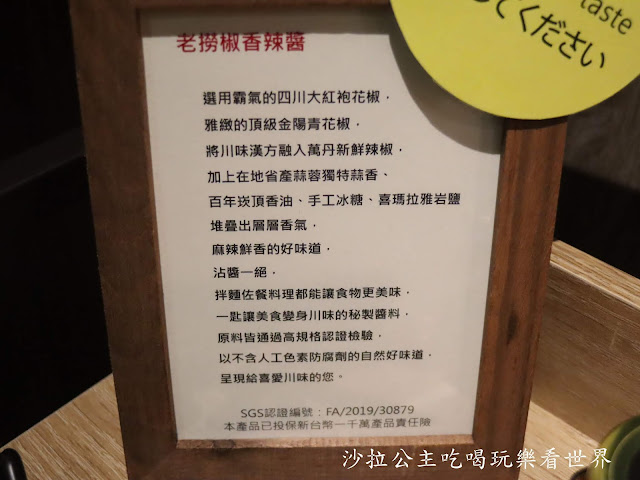 taste
してください
老撈椒香辣醬
選用霸氣的四川大紅袍花椒，
雅緻的頂級金陽青花椒，
將川味漢方融入萬丹新鮮辣椒，
加上在地省產蒜蓉獨特蒜香、
百年崁頂香油、手工冰糖、喜瑪拉雅岩鹽
堆疊出層層香氣，
麻辣鮮香的好味道，
沾醬一絕，
拌麵佐餐料理都能讓食物更美味，
一匙讓美食變身川味的秘製醬料，
原料皆通過高規格認證檢驗，
以不含人工色素防腐劑的自然好味道，
呈現給喜愛川味的您。
SGS認證編號：FA/2019/30879
本產品已投保新台幣一千萬產品責任險
沙拉公主吃喝玩樂看世界